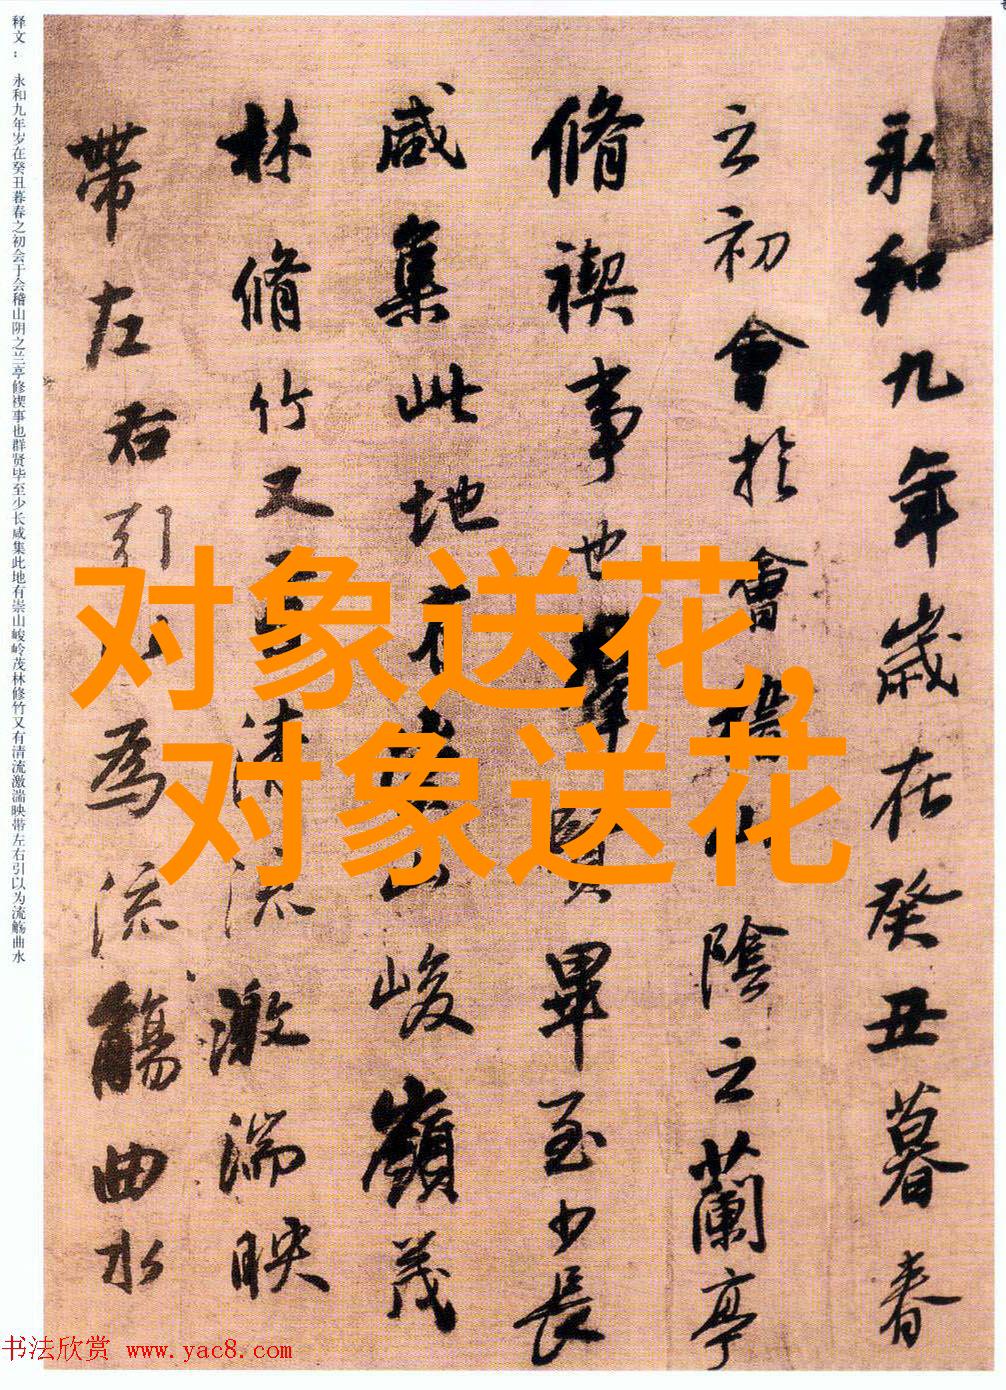 永和九年歲在癸丑暮春
之初會於會稽山陰之蘭亭
脩禊事也群賢畢至少長
咸集此地有崇山峻嶺茂
林脩竹又有清流激湍映
帶左右引以為流觴曲水
释文： 永和九年岁在癸丑暮春之初会于会稽山阴之兰亭修禊事也群贤毕至少长咸集此地有崇山峻岭茂林修竹又有清流激湍映带左右引以为流觞曲水
对象送花,
对象送花
书法欣赏 www.yac8.com